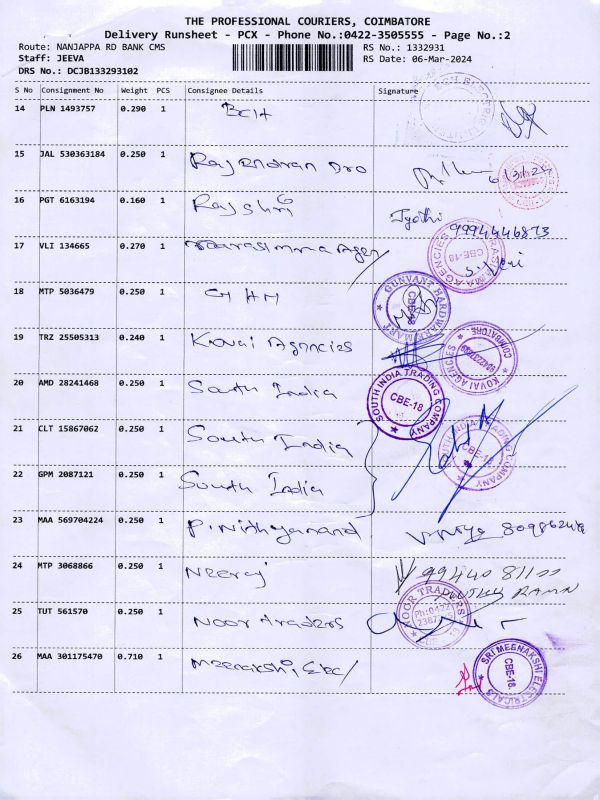 THE PROFESSIONAL COURIERS, COIMBATORE
Delivery Runsheet - PCX - Phone No.:0422-3505555 - Page No.:2
Route: NANJAPPA RD BANK CMS RS No.: 1332931
Staff: JEEVA RS Date: 06-Mar-2024
DRS No.: DCJB133293102
S No Consignment No Weight PCS Consignee Details Signature
14 PLN 1493757 0.290 1
15 JAL 530363184 0.250 1 Rajendran Dro 6/3/24
16 PGT 6163194 0.160 1 Rajshri Jyothi
9994446873
17 VLI 134665 0.270 1
AGENCIES CBE-18
18 MTP 5036479 0.250 1 GHM
GUNVANT HARDWARE MART CBE-18
19 TRZ 25505313 0.240 1 Kovai Agencies
KOVAI AGENCIES COIMBATORE
20 AMD 28241468 0.250 1 South India
SOUTH INDIA TRADING COMPANY CBE-18
21 CLT 15867062 0.250 1 South India
SOUTH INDIA TRADING COMPANY CBE-18
22 GPM 2087121 0.250 1 South India
23 MAA 569704224 0.250 1 P. Nithyanand
24 MTP 3068866 0.250 1 Neeraj
25 TUT 561570 0.250 1 Noor Traders
NOOR TRADERS Ph:0422
26 MAA 301175470 0.710 1 Meenakshi, Elec/
SRI MEENAKSHI ELECTRICALS CBE-18.